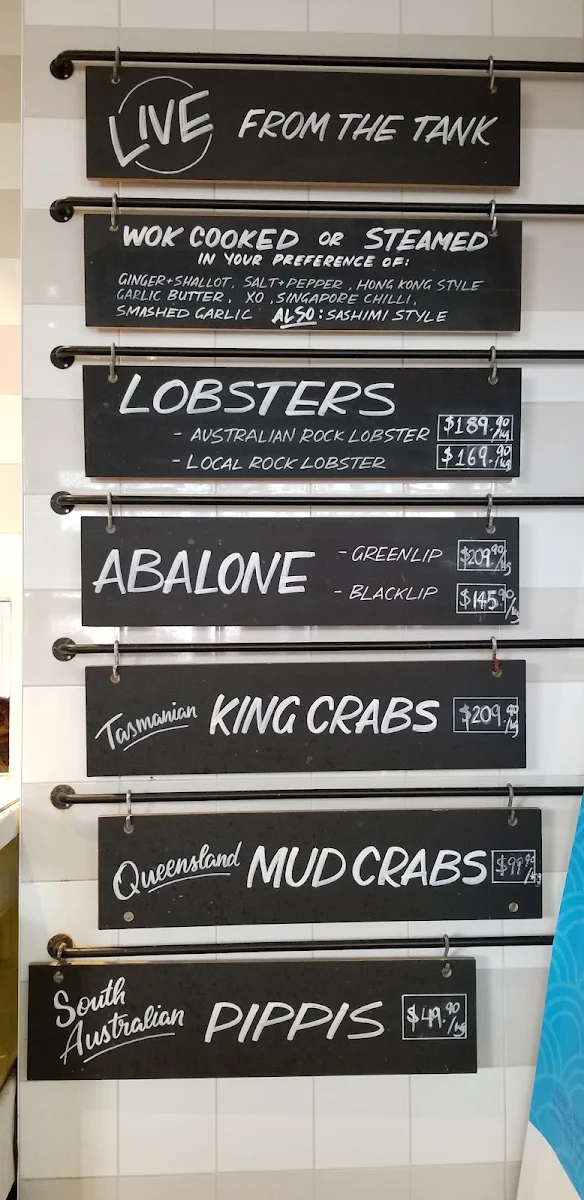 LIVE FROM THE TANK
WOK COOKED OR STEAMED
IN YOUR PREFERENCE OF:
GINGER+SHALLOT, SALT+PEPPER, HONG KONG STYLE
GARLIC BUTTER, XO, SINGAPORE CHILLI,
SMASHED GARLIC ALSO: SASHIMI STYLE
LOBSTERS
- AUSTRALIAN ROCK LOBSTER $189.90/kg
- LOCAL ROCK LOBSTER $169.90/kg
ABALONE
- GREENLIP $209.90/kg
- BLACKLIP $145.90/kg
Tasmanian KING CRABS $209.90/kg
Queensland MUD CRABS $99.90/kg
South
Australian PIPPIS $49.90/kg